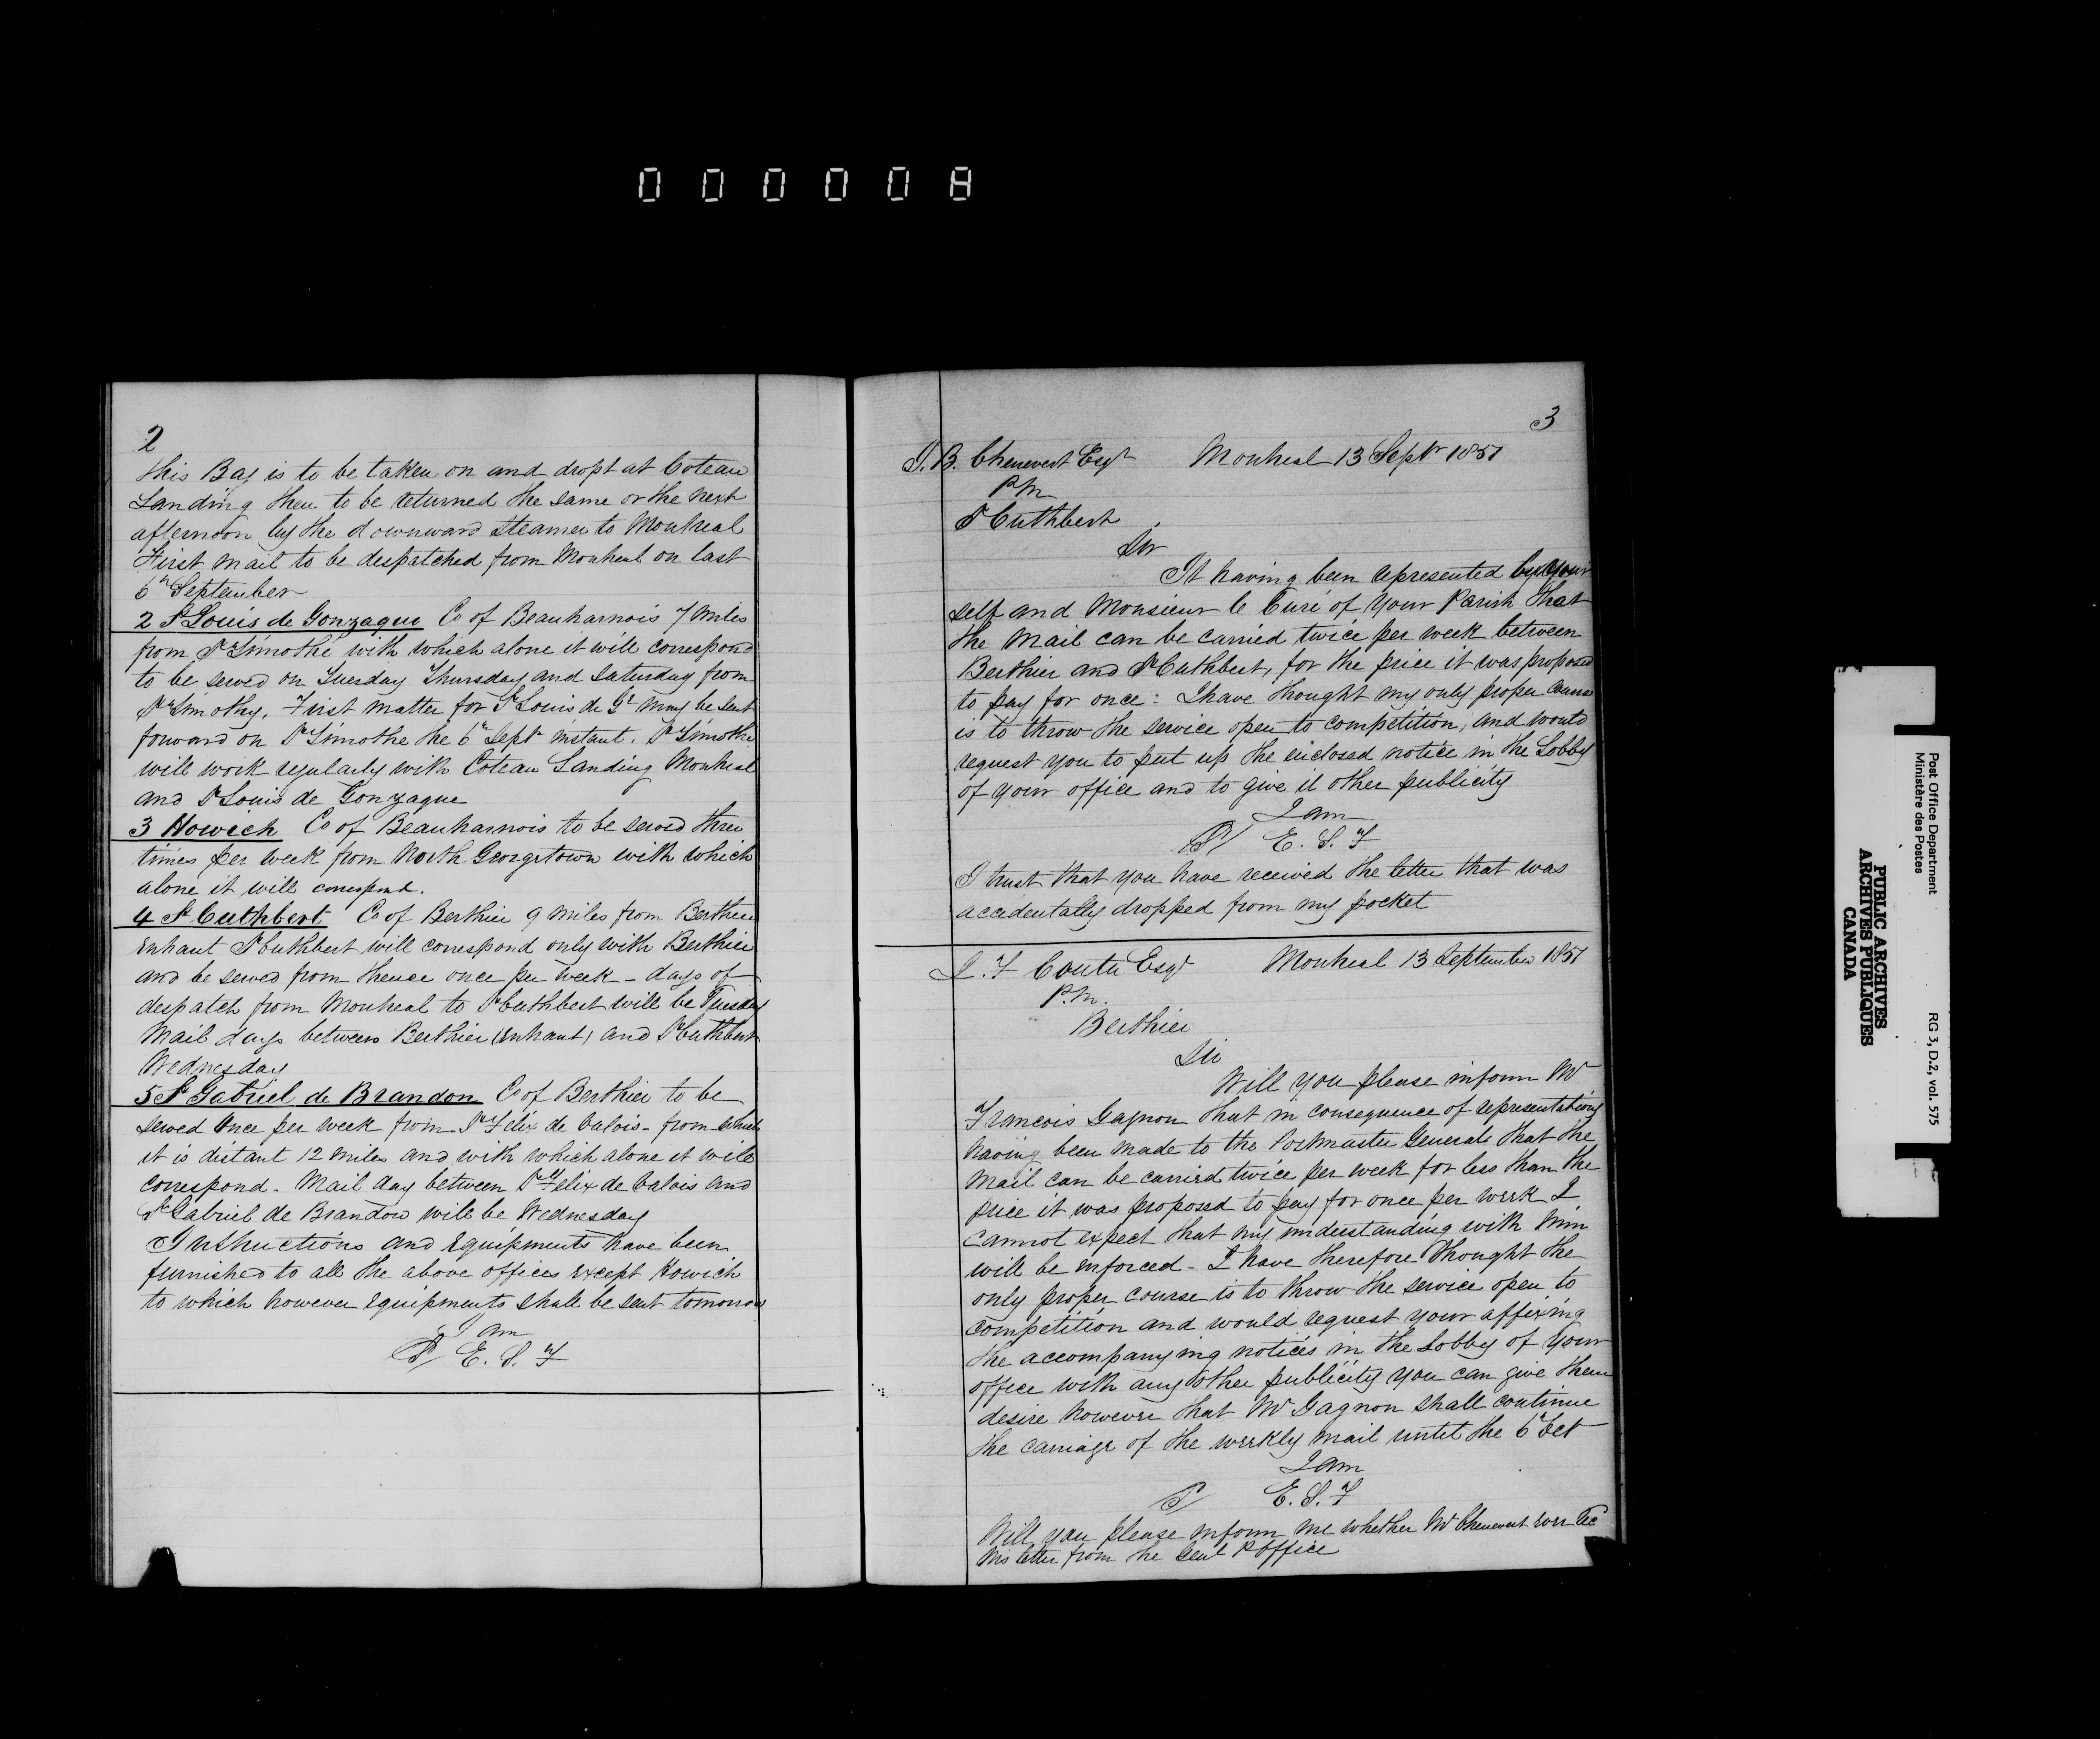 000008
2
this Bag is to be taken on and dropt at Coteau
Landing then to be returned the same or the next
afternoon by the downward steamer to Montreal
First mail to be despatched from Montreal on last
6th September
2 St Louis de Gonzague Co of Beauharnois 7 miles
from St Timothé with which alone it will correspond
to be served on Tuesday Thursday and Saturday from
St Timothy. First matter for St Louis de G may be sent
forward on St Timothe the 6th Septr instant. St Timothe
will work regularly with Coteau Landing Montreal
and St Louis de Gonzague
3 Howich Co of Beauharnois to be served three
times per week from North Georgetown with which
alone it will correspond.
4 St Cuthbert Co of Berthier 9 miles from Berthier
enhaut St Cuthbert will correspond only with Berthier
and be served from thence once per week - days of
despatch from Montreal to St Cuthbert will be Tuesday
Mail days between Berthier (enhaut) and St Cuthbert
Wednesday
5 St Gabriel de Brandon Co of Berthier to be
served once per week from St Félix de Valois - from which
it is distant 12 miles and with which alone it will
correspond - Mail day between St Felix de Valois and
St Gabriel de Brandon will be Wednesday
Instructions and Equipments have been
furnished to all the above offices except Howich
to which however equipments shall be sent tomorrow
I am
E. S. F
3
J. B. Chenevert Esqr Montreal 13 Septr 1851
P M
St Cuthbert
Sir
It having been represented by your
self and Monsieur le Curé of your Parish that
the mail can be carried twice per week between
Berthier and St Cuthbert, for the price it was proposed
to pay for once: I have thought my only proper course
is to throw the service open to competition, and would
request you to put up the enclosed notice in the Lobby
of your office and to give it other publicity
I am
E. S. F
I trust that you have received the letter that was
accidentally dropped from my pocket
L. F Coutu Esqr Montreal 13 September 1851
P.M.
Berthier
Sir
Will you please inform Mr
Francois Gagnon that in consequence of representations
having been made to the Postmaster General that the
mail can be carried twice per week for less than the
price it was proposed to pay for once per week I
cannot expect that my understanding with him
will be enforced - I have therefore thought the
only proper course is to throw the service open to
competition and would request your affixing
the accompanying notices in the Lobby of your
office with any other publicity you can give them
desire however that Mr Gagnon shall continue
the carriage of the weekly mail until the 6th Oct
I am
E. S. F
Will you please inform me whether Mr Chenevert ever rec
his letter from the Genl P Office
Post Office Department
Ministère des Postes
RG 3, D.2, vol. 575
PUBLIC ARCHIVES
ARCHIVES PUBLIQUES
CANADA